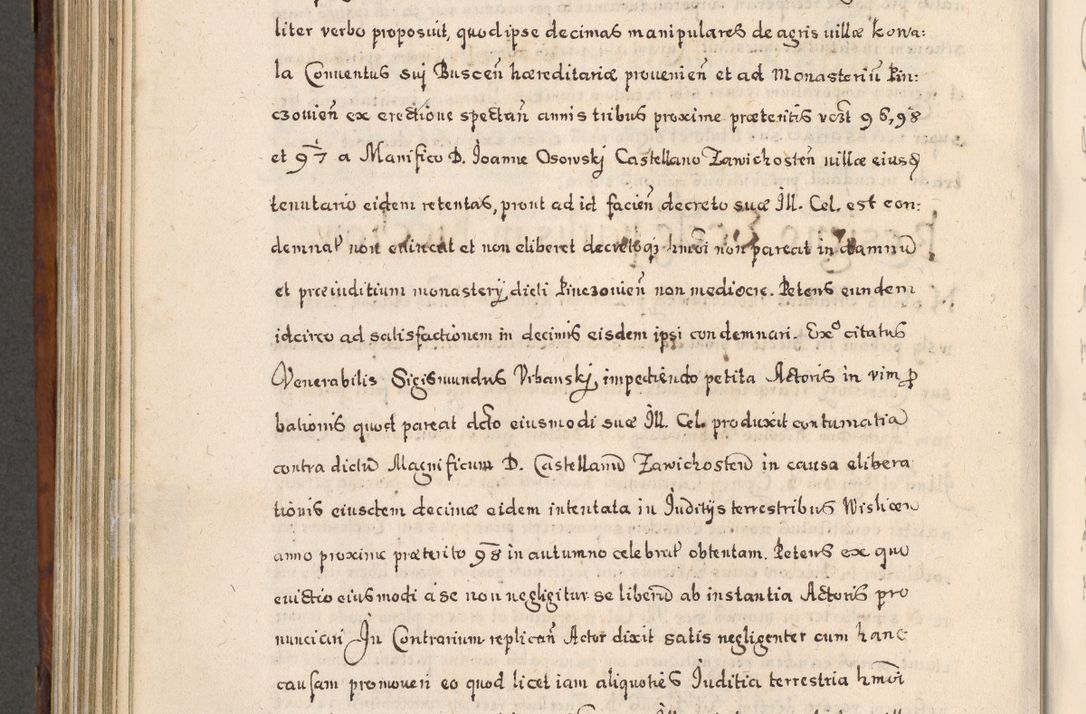 liter verbo proposuit, quod ipse decimas manipulares de agris uillæ Kowa:
la Conuentus sui Buscen̄ hæreditariæ prouenien̄ et ad Monasteriū Pin:
czouien̄ ex erectione spectan̄ annis tribus proxime præteritis vczt 96, 98
et 97 a Manifico D. Joanne Osowskj Castellano Zawichosten̄ uillæ eiusq
tenutario eidem retentas, prout ad id facien̄ decreto suæ Ill. Cel. est con:
demnat non euincat et non eliberet decretoq hmōi non pareat in damnū
et præiuditium monasterij dicti Pinczouien̄ non mediocre. Petens eundem
idcirco ad satisfactionem in decimis eisdem ipsi condemnari. Exº citatus
Venerabilis Sigismundus Vrbanskj, impediendo petita Actoris in vim p
bationis quod pareat dcto eiusmodi suæ Ill. Cel. produxit contumatiā
contra dictū Magnificum D. Castellanū Zawichosten̄ in causa elibera
tionis eiusdem decimæ eidem intentata in Juditijs terrestribus Wislicen̄
anno proxime præterito 98 in autumno celebrat obtentam. Petens ex quo
euictio eiusmodi a se non negligitur se liberū ab instantia Actoris pro
nunciari In Contrarium replican̄ Actor dixit satis negligenter eum hanc
causam promoueri eo quod licet iam aliquoties Juditia terrestria hmōi